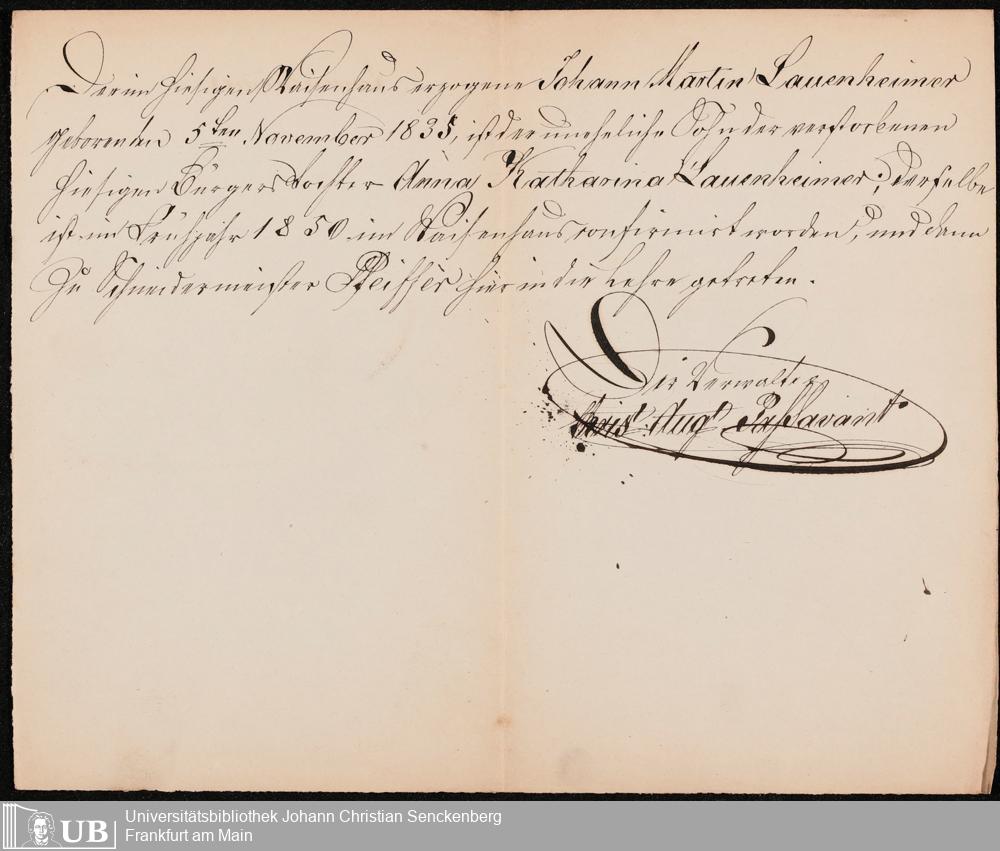 Der im hiesigen Waisenhaus erzogene Johann Martin Lauenheimer
geboren den 5ten November 1835, ist der uneheliche Sohn der verstorbenen
hiesigen Bürgers Tochter Anna Katharina Lauenheimer; derselbe
ist im Frühjahr 1850 im Waisenhaus confirmirt worden, und dann
zu Schneidermeister Pfeiffer hier in die Lehre getreten.
Der Verwalter
Christ. Augt Passavant
UB
Universitätsbibliothek Johann Christian Senckenberg
Frankfurt am Main